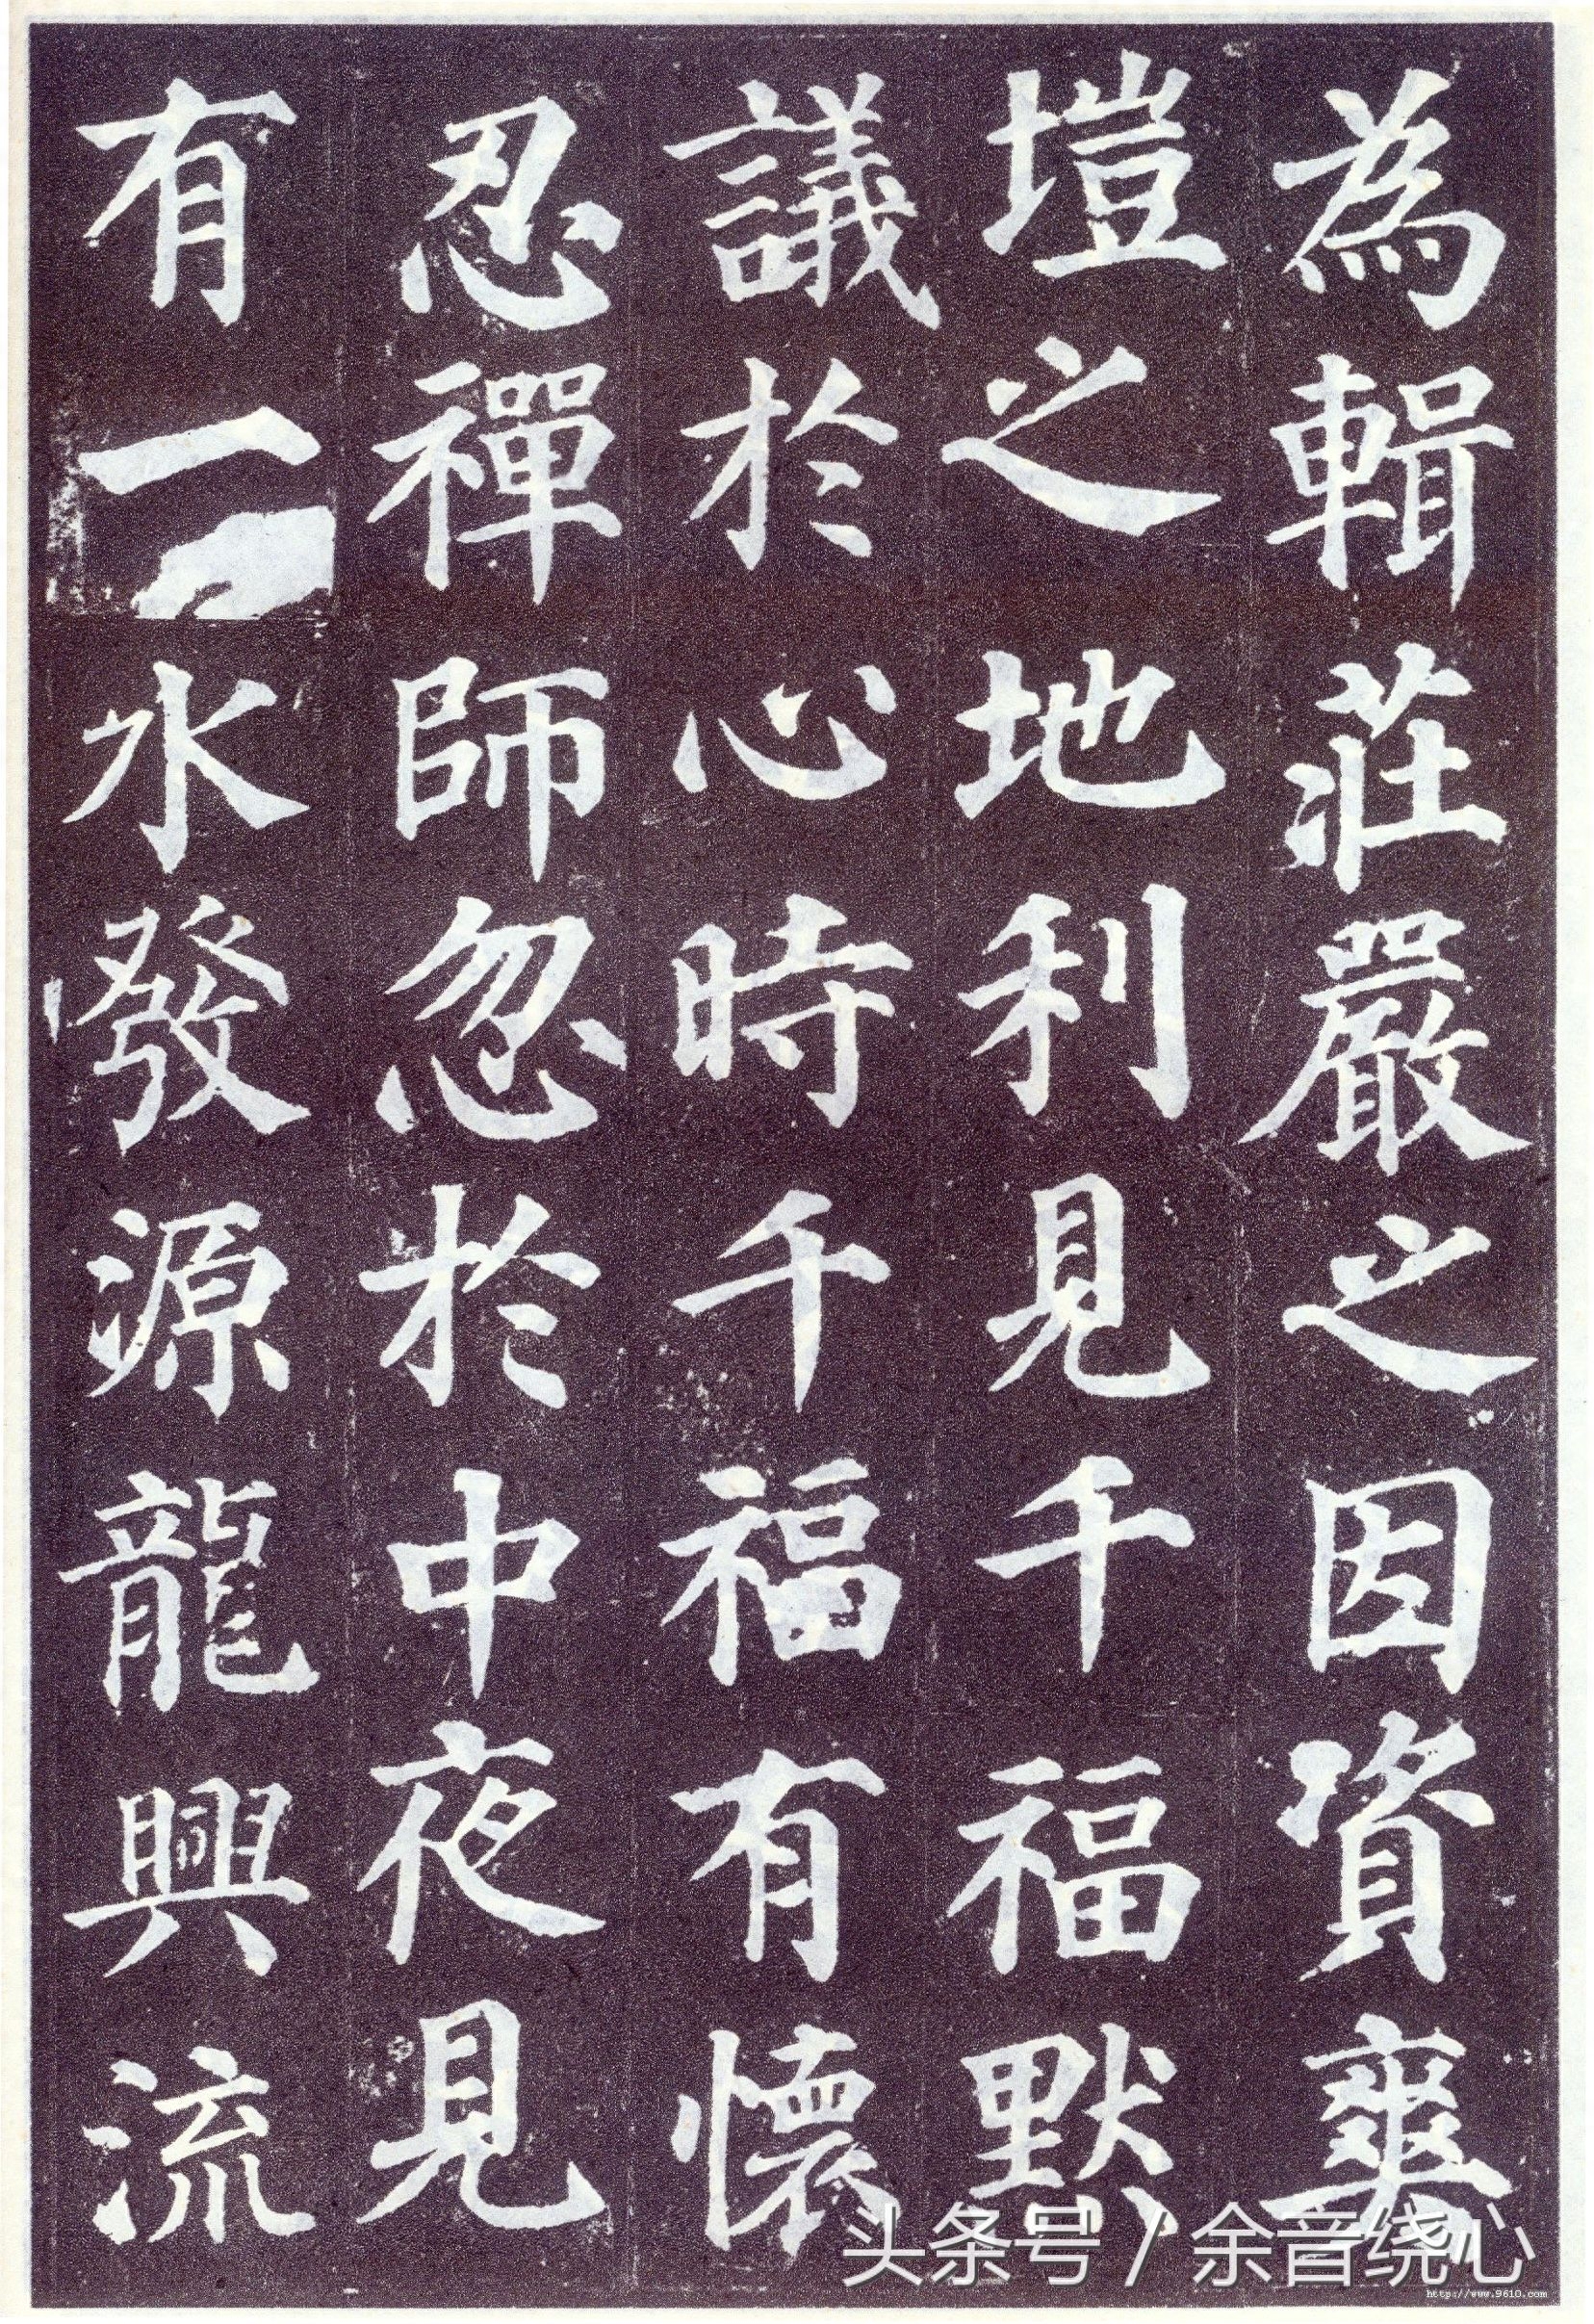 為輯莊嚴之因資爽
塏之地利見千福默
議於心時千福有懷
忍禪師忽於中夜見
有一水發源龍興流
头条号 / 余音绕心
http://www.9610.com